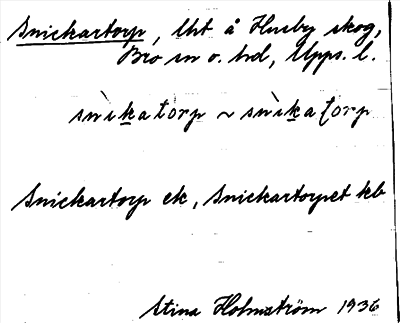 Snickartorp, lht å Husby skog,
Bro sn o. hd, Upps. l.
snìkatorp ~ snìkatorp
Snickartorp ek, Snickartorpet kb
Stina Holmström 1936